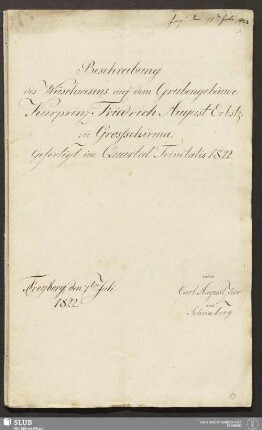 Beschreibung
des Wäschwesens auf dem Grubengebäude
Kurprinz Friedrich August Erbst:
in Grosschirma
Gefertigt im Quartal Trinitatis 1822.
Freyberg den 7ten Juli
1822.
von
Carl August
aus
Schneeberg.
SLUB